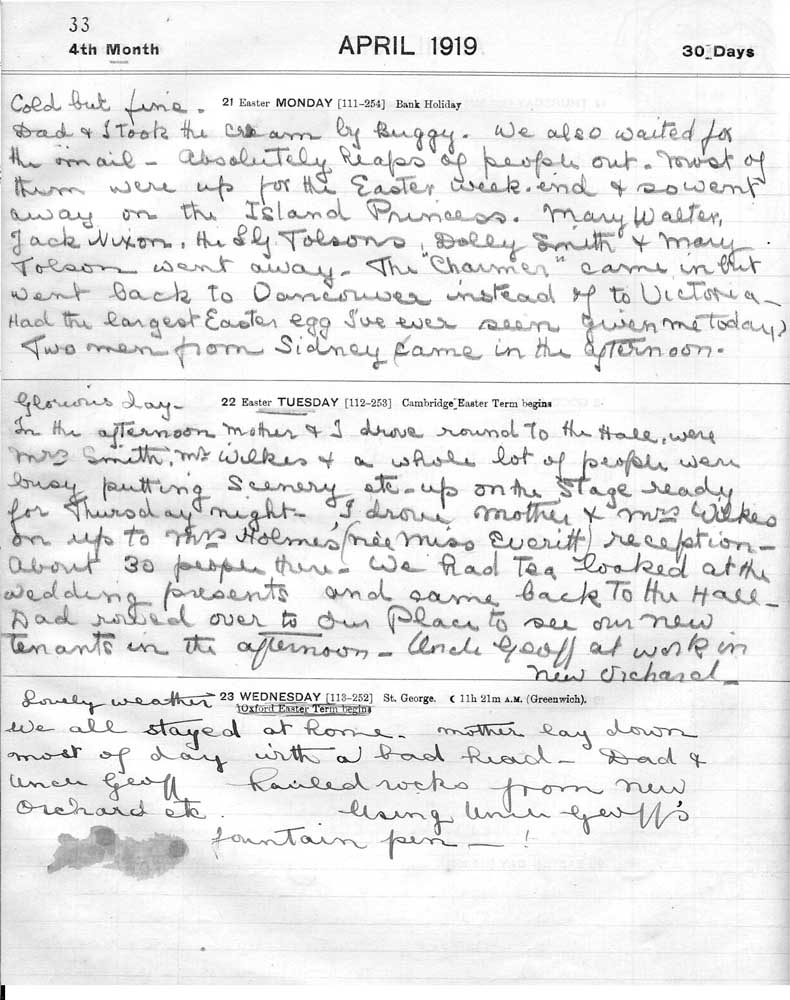 33
4th Month APRIL 1919 30 Days
Cold but fine. 21 Easter MONDAY [111-254] Bank Holiday
Dad & I took the cream by Buggy. We also waited for
the mail - Absolutely heaps of people out. Most of
them were up for the Easter week-end & so went
away on the Island Princess. Mary Walter,
Jack Nixon, the Tolsons, Dolly Smith & Mary
Tolson went away - The "Charmer" came in but
went back to Vancouver instead of to Victoria -
Had the largest Easter egg I've ever seen given me today)
Two men from Sidney came in the afternoon.
Glorious day - 22 Easter TUESDAY [112-253] Cambridge Easter Term begins
In the afternoon Mother & I drove round to the Hall, were
Mrs Smith, Mr Wilkes & a whole lot of people were
busy putting Scenery etc - up on the Stage ready
for Thursday night - I drove Mother & Mrs Wilkes
on up to Mrs Holmes (née Miss Everitt) reception -
About 30 people there - We had Tea looked at the
wedding presents and came back to the Hall -
Dad rowed over to Our Place to see our new
tenants in the afternoon - Uncle Geoff at work in
New Orchard -
Lovely weather 23 WEDNESDAY [113-252] St. George. ☾ 11h 21m A.M. (Greenwich).
Oxford Easter Term begins
We all stayed at home - Mother lay down
most of day with a bad head - Dad &
Uncle Geoff hauled rocks from New
Orchard etc. Using Uncle Geoff's
fountain pen - !